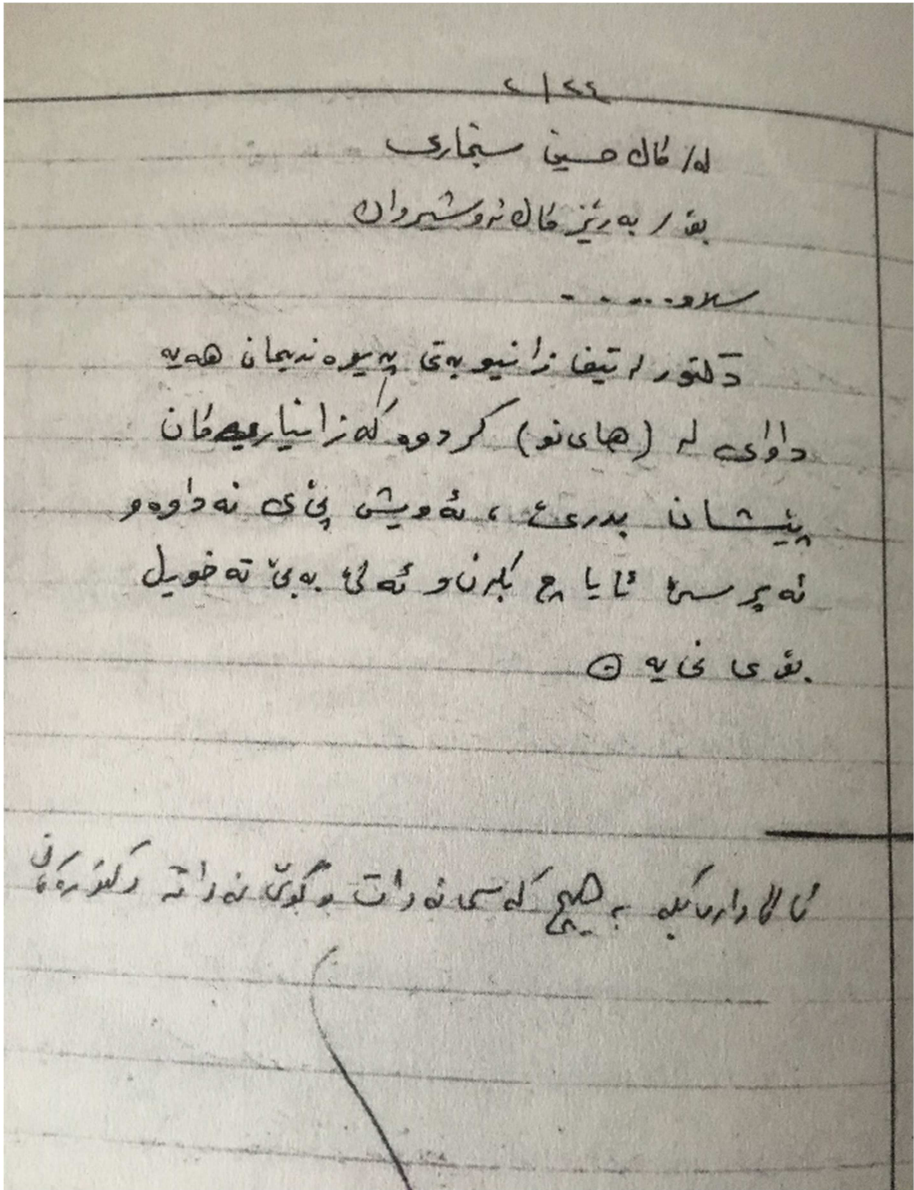 ٢٤/٢
لە/ کاک حسین سنجاری
بۆ / بەرێز کاک نەوشیروان
سلاو.....
دکتور لەتیف زانیویەتی پەیوەندیمان هەیە
داوای لە (های نو) کردوە کە زانیاریەکان
پێشان بدرێ ، ئەویش پێی نەداوەو
ئەپرسێ ئایا چ بکرن و ئەلێ بەبێ تەخویل
بۆی نی یە
بە هیچ کەسی نەدات و گوێ نەداتە